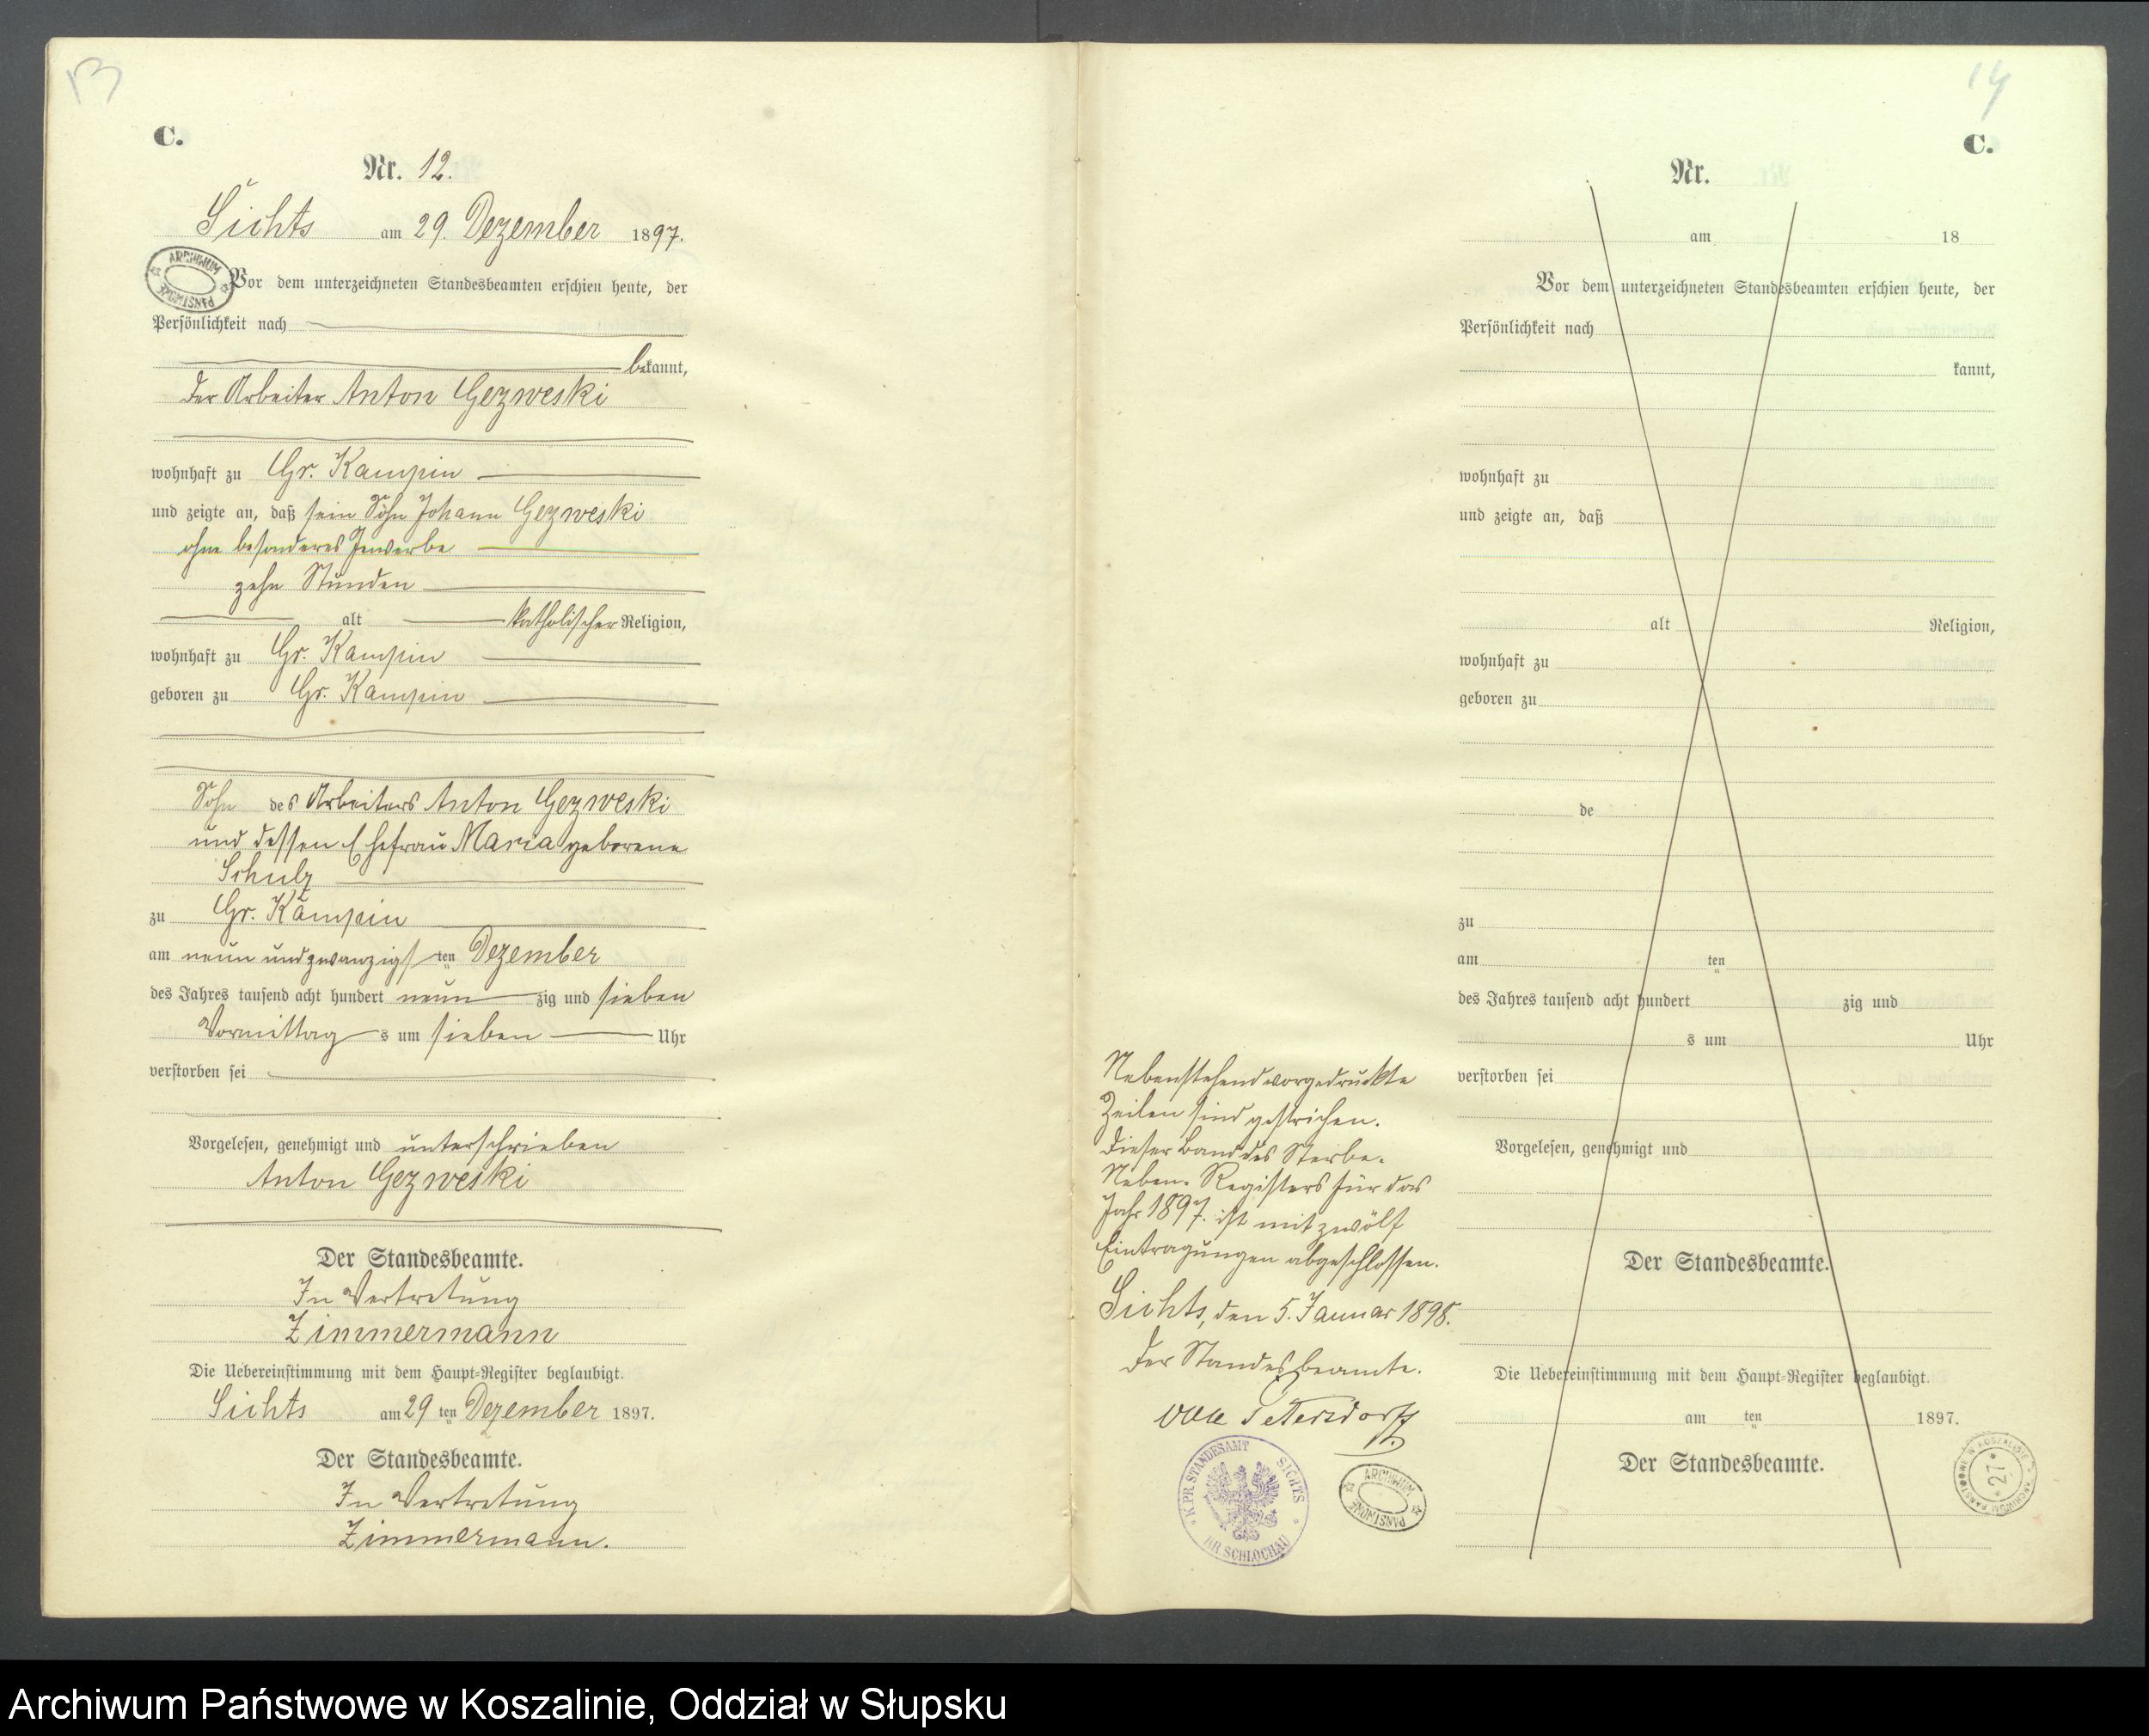 13
C.
Nr. 12.
Sichts am 29. Dezember 1897.
ARCHIWUM PAŃSTWOWE
Vor dem unterzeichneten Standesbeamten erschien heute, der
Persönlichkeit nach
bekannt,
der Arbeiter Anton Gezweski
wohnhaft zu Gr. Kampin
und zeigte an, daß sein Sohn Johann Gezweski
ohne besonderes Gewerbe
zehn Stunden
alt katholischer Religion,
wohnhaft zu Gr. Kampin
geboren zu Gr. Kampin
Sohn des Arbeiters Anton Gezweski
und dessen Ehefrau Maria geborene
Schulz
zu Gr. Kampin
am neun und zwanzigsten Dezember
des Jahres tausend acht hundert neunzig und sieben
Vormittags um sieben Uhr
verstorben sei
Vorgelesen, genehmigt und unterschrieben
Anton Gezweski
Der Standesbeamte.
In Vertretung
Zimmermann
Die Uebereinstimmung mit dem Haupt-Register beglaubigt.
Sichts am 29ten Dezember 1897.
Der Standesbeamte.
In Vertretung
Zimmermann.
14
C.
Nr.
am 18
Vor dem unterzeichneten Standesbeamten erschien heute, der
Persönlichkeit nach
kannt,
wohnhaft zu
und zeigte an, daß
alt Religion,
wohnhaft zu
geboren zu
de
zu
am ten
des Jahres tausend acht hundert zig und
s um Uhr
verstorben sei
Vorgelesen, genehmigt und
Der Standesbeamte.
Die Uebereinstimmung mit dem Haupt-Register beglaubigt.
am ten 1897.
Der Standesbeamte.
Nebenstehend vorgedruckte
Zeilen sind gestrichen.
Dieser Band des Sterbe-
Neben-Registers für das
Jahr 1897. ist mit zwölf
Eintragungen abgeschlossen.
Sichts, den 5. Januar 1898.
Der Standesbeamte.
Petersdorff
K. PR. STANDESAMT SICHTS
KR. SCHLOCHAU
ARCHIWUM PAŃSTWOWE
ARCHIWUM PAŃSTWOWE W KOSZALINIE
* 27 *
Archiwum Państwowe w Koszalinie, Oddział w Słupsku